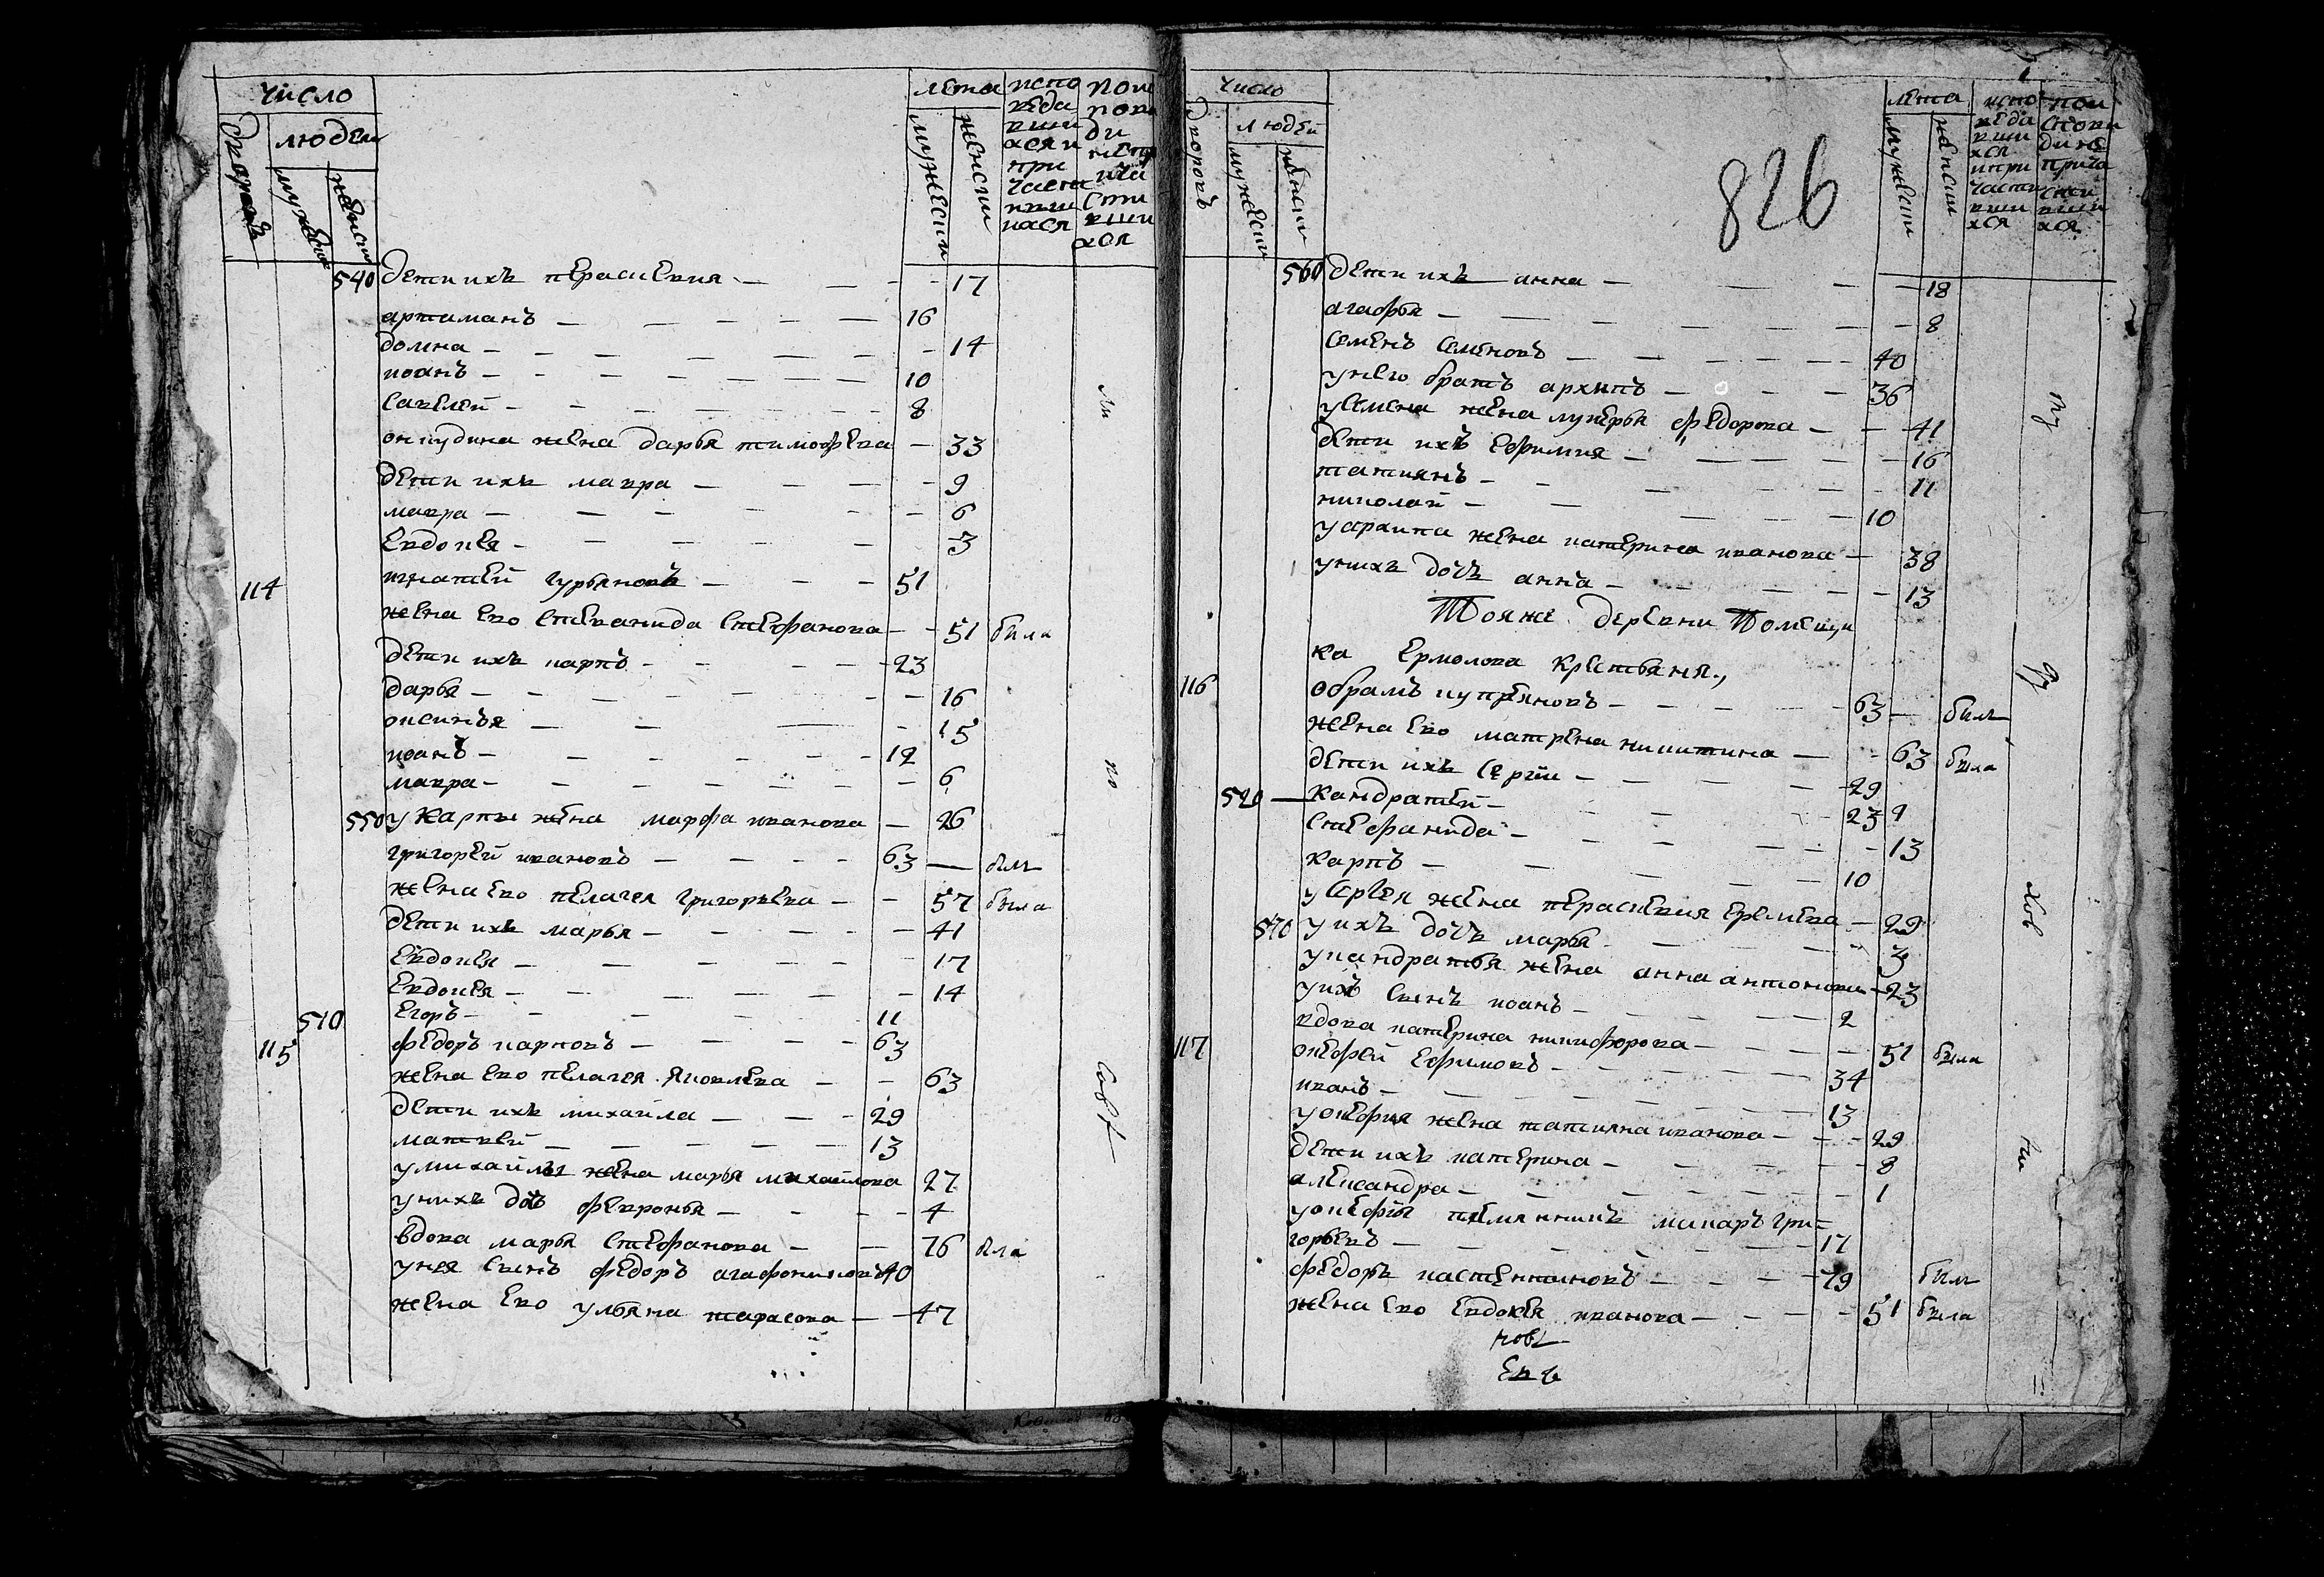 число
лета
дворовъ
людей
мужеска
женска
мужеска
женска
540 дети ихъ перасиевия — 17
артиманъ — 16
домна — 14
иоанъ — 10
савелей — 8
онкудина жена дарья тимофева — 33
дети ихъ мавра — 9
мавра — 6
евдокея — 3
114 игнатей гурьяновъ — 51
жена ево степанида стефанова — 51 была
дети ихъ карпъ — 23
дарья — 16
оксинья — 15
иоанъ — 12
мавра — 6
550 у карпы жена марфа иванова — 26
григорей ивановъ — 63 — былъ
жена ево пелагея григорьева — 57 была
дети ихъ марья — 41
евдокея — 17
евдокея — 14
510 егоръ — 11
115 федоръ карповъ — 63
жена ево пелагея яковлева — 63
дети ихъ михайла — 29
матвей — 13
у михайлы жена марья михайлова 27
у нихъ дочь февронья — 4
вдова марья стефанова — 76 была
у нея сынъ федоръ агафониковъ 40
жена ево ульяна тарасова — 47
826
число
лета
дворовъ
людей
мужеска
женска
мужеска
женска
560 дети ихъ анна — 18
агафья — 8
семенъ семеновъ — 40
у нево братъ архипъ — 36
у семена жена лукерья федорова — 41
дети ихъ ефимия — 16
татиянъ — 11
николай — 10
у архипа жена катерина иванова — 38
у нихъ дочь анна — 13
Тояже деревни Помещи
ка Ермолова крестьяня
116 обрамъ купреяновъ — 63 — былъ
жена ево матрена никитина — 63 была
дети ихъ сергии — 29
520 — кандратей — 23
стефанида — 13
карпъ — 10
у сергея жена перасиевия еремева — 29
570 у ихъ дочь марья — 3
у кандратья жена анна антонова — 23
у ихъ сынъ иоанъ — 2
вдова катерина никифорова — 51 была
117 онефей ефимовъ — 34
иванъ — 13
у онефия жена татияна иванова — 29
дети ихъ катерина — 8
александра — 1
у онефия племянникъ макаръ гри-
горьевъ — 17
федоръ кастентиновъ — 79 былъ
жена ево евдокея иванова — 51 была